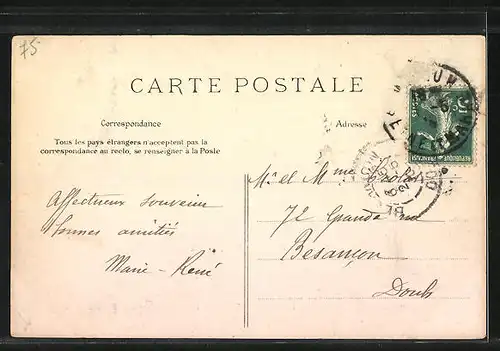 75
CARTE POSTALE
Correspondance
Adresse
Tous les pays étrangers n'acceptent pas la
correspondance au recto, se renseigner à la Poste
Affectueux souvenir
bonnes amitiés
Marie-René
M. et Mme
72 Grande rue
Besançon
Doubs
5c
REPUBLIQUE FRANÇAISE